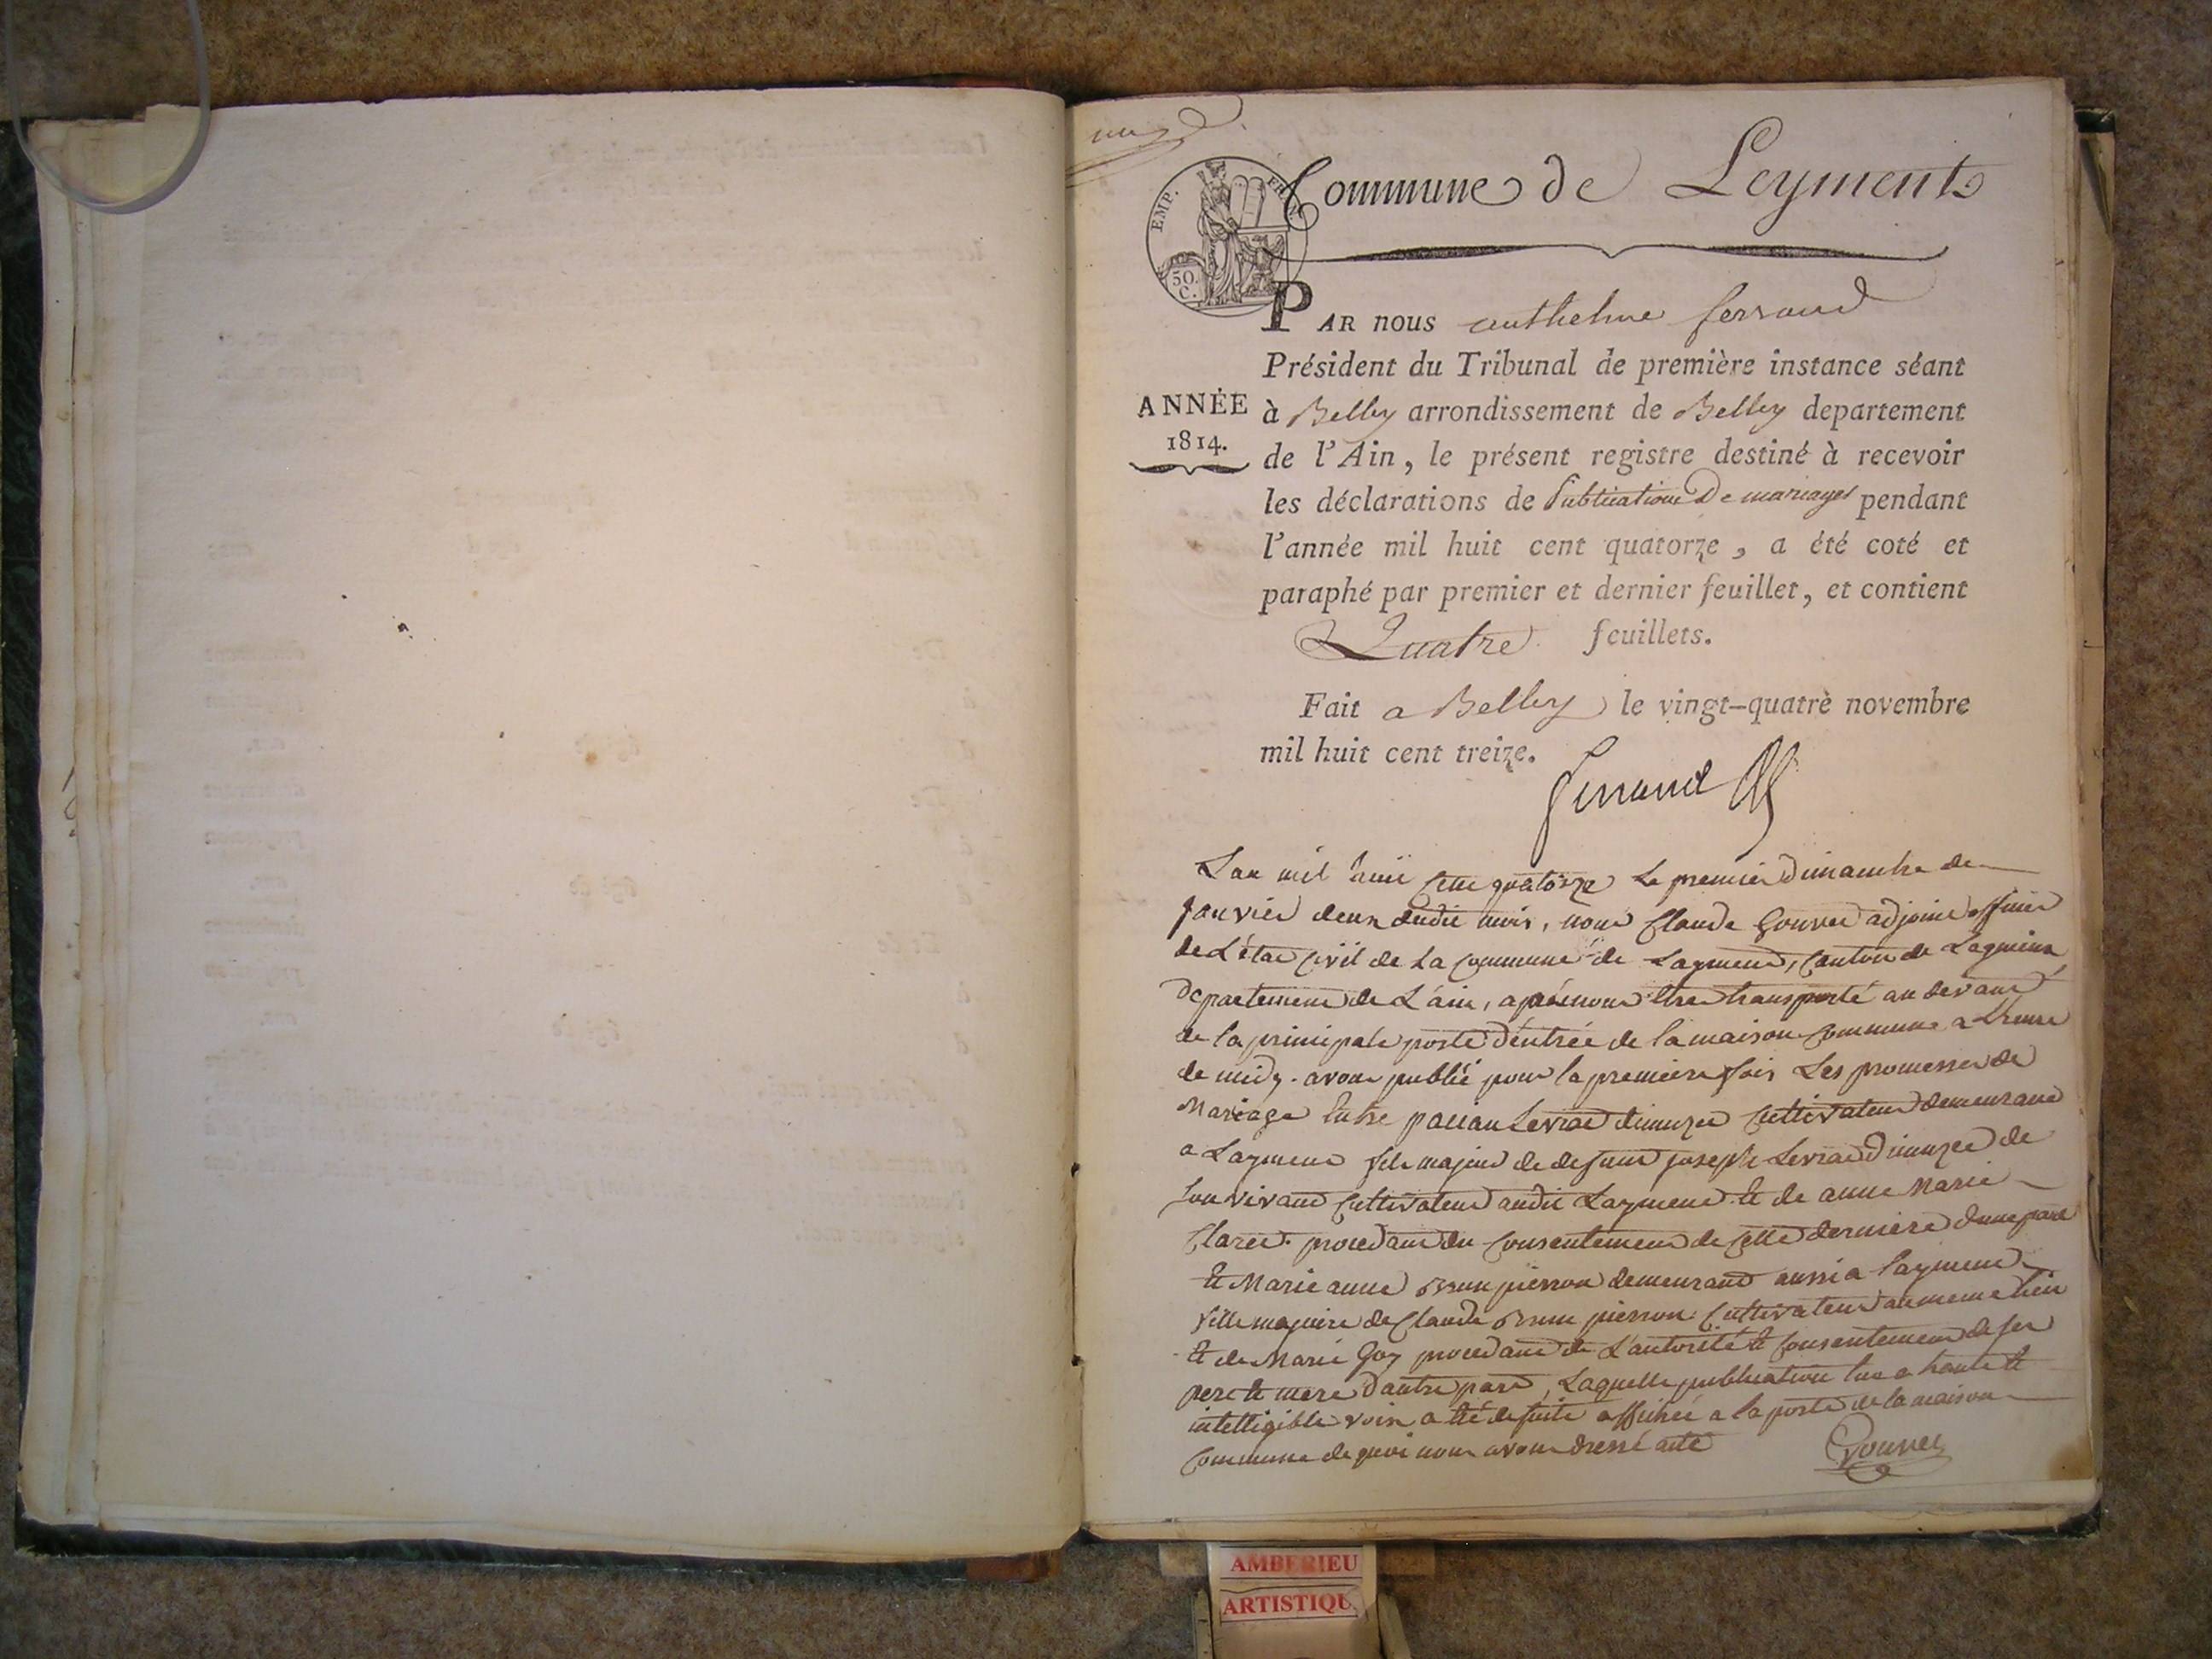 une
Commune de Leyment
EMP. FRAN.
50. C.
PAR nous anthelme ferrand
Président du Tribunal de première instance séant
ANNÉE
1814.
à Belley arrondissement de Belley departement
de l'Ain, le présent registre destiné à recevoir
les déclarations de Publications De mariages pendant
l'année mil huit cent quatorze, a été coté et
paraphé par premier et dernier feuillet, et contient
Quatre feuillets.
Fait a Belley le vingt-quatre novembre
mil huit cent treize.
ferrand
L'an mil huit cent quatorze Le premier Dimanche de
Janvier deux dudit mois, nous Claude Gouvet adjoint officier
de L'état civil de La Commune de Layment, canton de Lagnieux
Departement de L'ain, après nous être transporté au devant
de la principale porte d'entrée de la maison Commune a L'heure
de midy. avons publié pour la première fois Les promesses de
Mariage Entre Levrat cultivateur demeurant
a Layment fils majeur de defunt joseph Levrat de
son vivant cultivateur audit Layment Et de anne Marie
Claret. procedant du consentement de cette derniere d'une part
Et Marie anne Brun pierron demeurant aussi a Layment
fille majeure de Claude Brun pierron Cultivateur au meme lieu
Et de Marie Goy procedant de L'autorité Et consentement de ses
pere Et mere D'autre part, Laquelle publication lue a haute Et
intelligible voix a été de suite affichée a la porte de la maison
Commune de quoi nous avons dressé acte Gouvet
AMBERIEU
ARTISTIQU